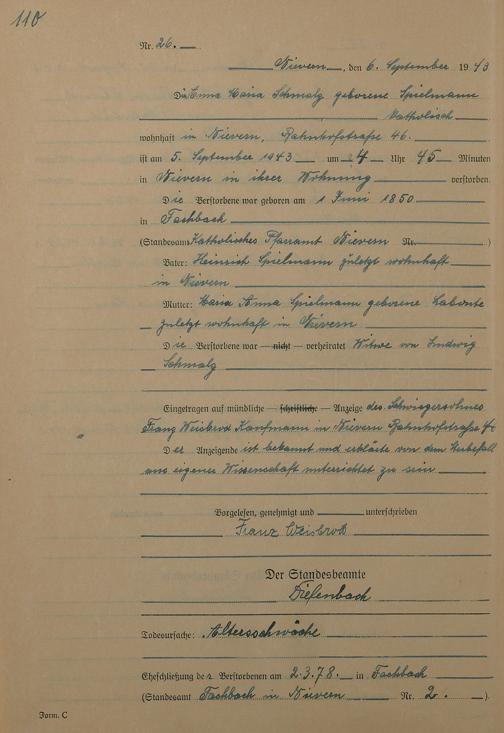 110
Nr. 26.
Nievern, den 6. September 1943
Die Anna Maria Schmalz geborene Spielmann
Katholisch
wohnhaft in Nievern, Bahnhofstraße 46.
ist am 5. September 1943 um 4 Uhr 45 Minuten
in Nievern in ihrer Wohnung verstorben.
Die Verstorbene war geboren am 1 Juni 1850
in Fachbach
(Standesamt Katholische Pfarramt Nievern Nr. )
Vater: Heinrich Spielmann zuletzt wohnhaft
in Nievern
Mutter: Maria Anna Spielmann geborene Labonte
zuletzt wohnhaft in Nievern
Die Verstorbene war — nicht — verheiratet Witwe von Ludwig
Schmalz
Eingetragen auf mündliche — schriftliche — Anzeige des Schwiegersohnes
Franz Weisbrod Kaufmann in Nievern Bahnhofstraße 46
Der Anzeigende ist bekannt und erklärte von dem Sterbefall
aus eigener Wissenschaft unterrichtet zu sein
Vorgelesen, genehmigt und unterschrieben
Franz Weisbrod
Der Standesbeamte
Diefenbach
Todesursache: Altersschwäche
Eheschließung der Verstorbenen am 2.3.78. in Fachbach
(Standesamt Fachbach in Nievern Nr. 2. )
Form. C